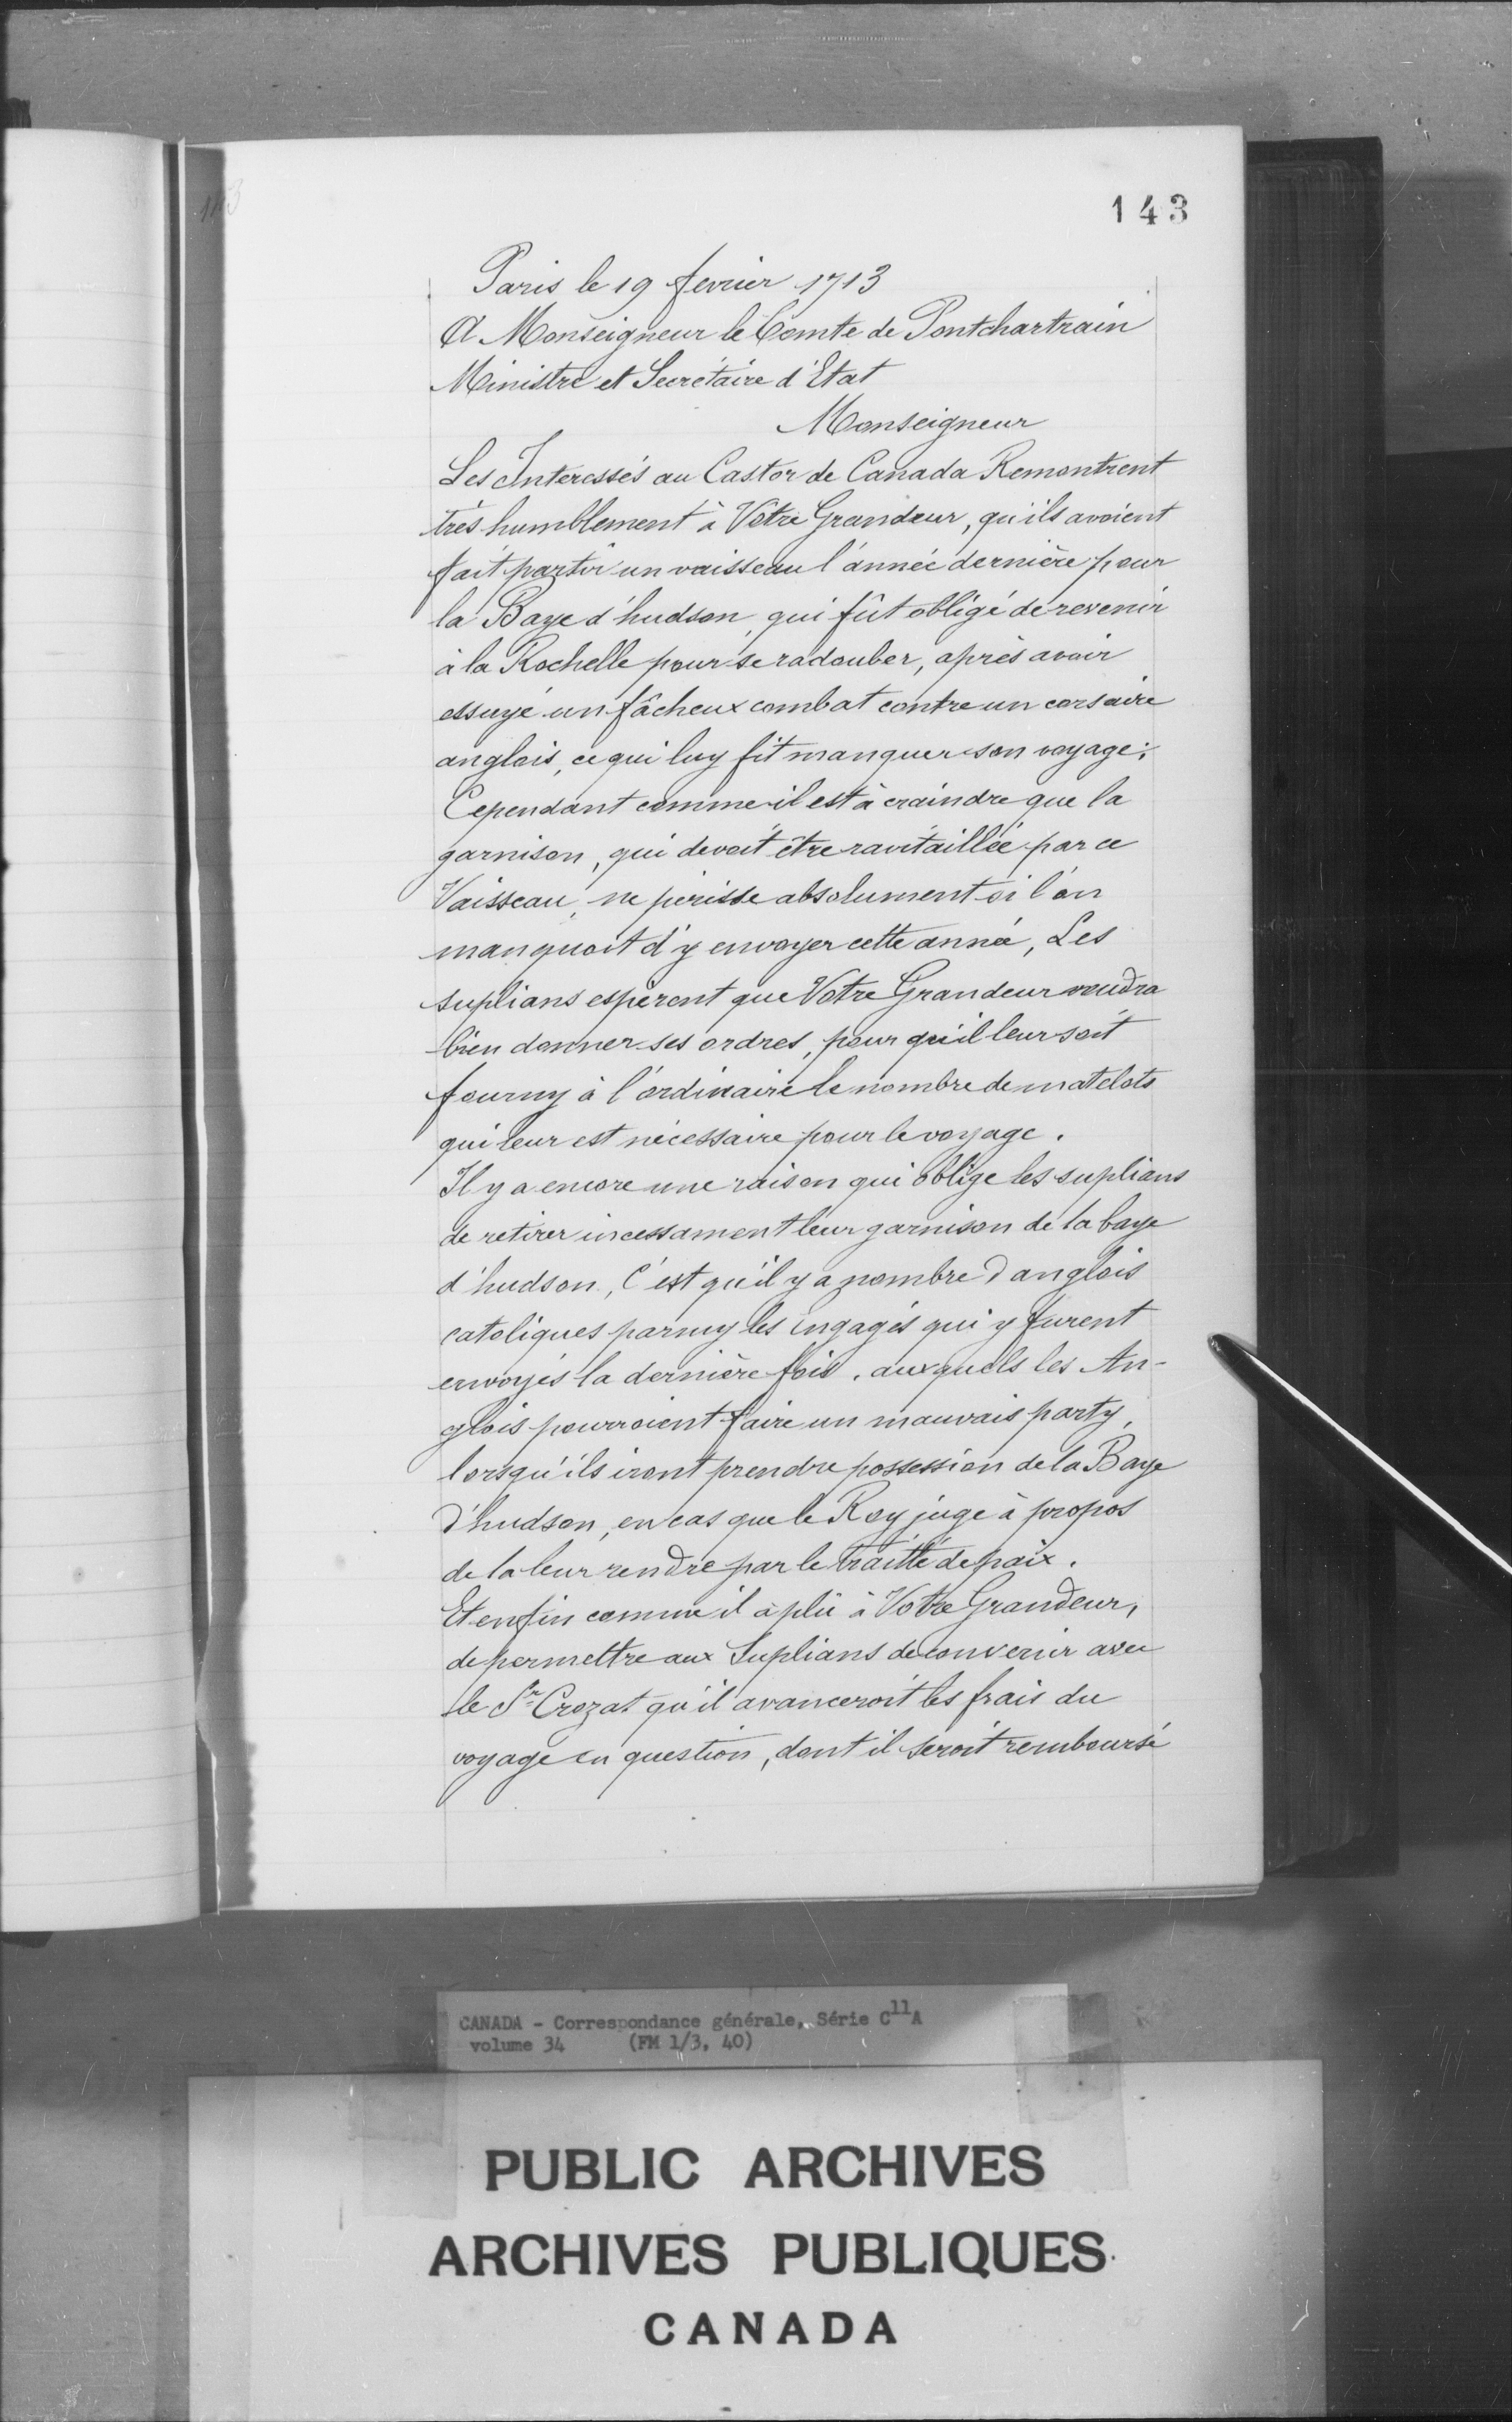 143
Paris le 19 fevrier 1713
A Monseigneur le Comte de Pontchartrain
Ministre et Secrétaire d'Etat
Monseigneur
Les Interessés au Castor de Canada Remontrent
très humblement à Vôtre Grandeur, qu'ils avoient
fait partir un vaisseau l'année dernière pour
la Baye d'hudson, qui fût obligé de revenir
à la Rochelle pour se radouber, après avoir
essuyé un fâcheux combat contre un corsaire
anglois, ce qui luy fit manquer son voyage;
Cependant comme il est à craindre que la
garnison, qui devoit être ravitaillée par ce
Vaisseau, ne périsse absolument si l'on
manquoit d'y envoyer cette année, Les
suplians espèrent que Votre Grandeur voudra
bien donner ses ordres, pour qu'il leur soit
fourny à l'ordinaire le nombre de matelots
qui leur est nécessaire pour le voyage.
Il y a encore une raison qui oblige les suplians
de retirer incessament leur garnison de la baye
d'hudson, C'est qu'il y a nombre d'anglois
catoliques parmy les engagés qui y furent
envoyés la dernière fois, auxquels les An-
glois pourroient faire un mauvais party,
lorsqu'ils iront prendre possession de la Baye
d'hudson, en cas que le Roy juge à propos
de la leur rendre par le traitté de paix.
Et enfin comme il a plû à Votre Grandeur,
de permettre aux Suplians de convenir avec
le Sr Crozat qu'il avanceroit les frais du
voyage en question, dont il seroit remboursé
CANADA - Correspondance générale, Série C11A
volume 34 (FM 1/3, 40)
PUBLIC ARCHIVES
ARCHIVES PUBLIQUES
CANADA